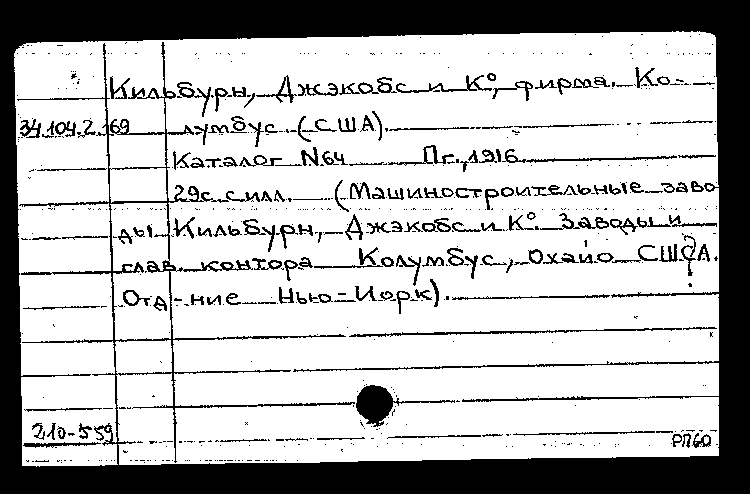 Кильбурн, Джэкобс и К°, фирма. Ко-
34.104.2.169 лумбус (США).
Каталог N64 Пг., 1916
29с. с илл. (Машиностроительные заво
ды Кильбурн, Джэкобс и К°. Заводы и
глав. контора Колумбус, Охайо США.
Отд-ние Нью-Иорк).
210-559
РП60